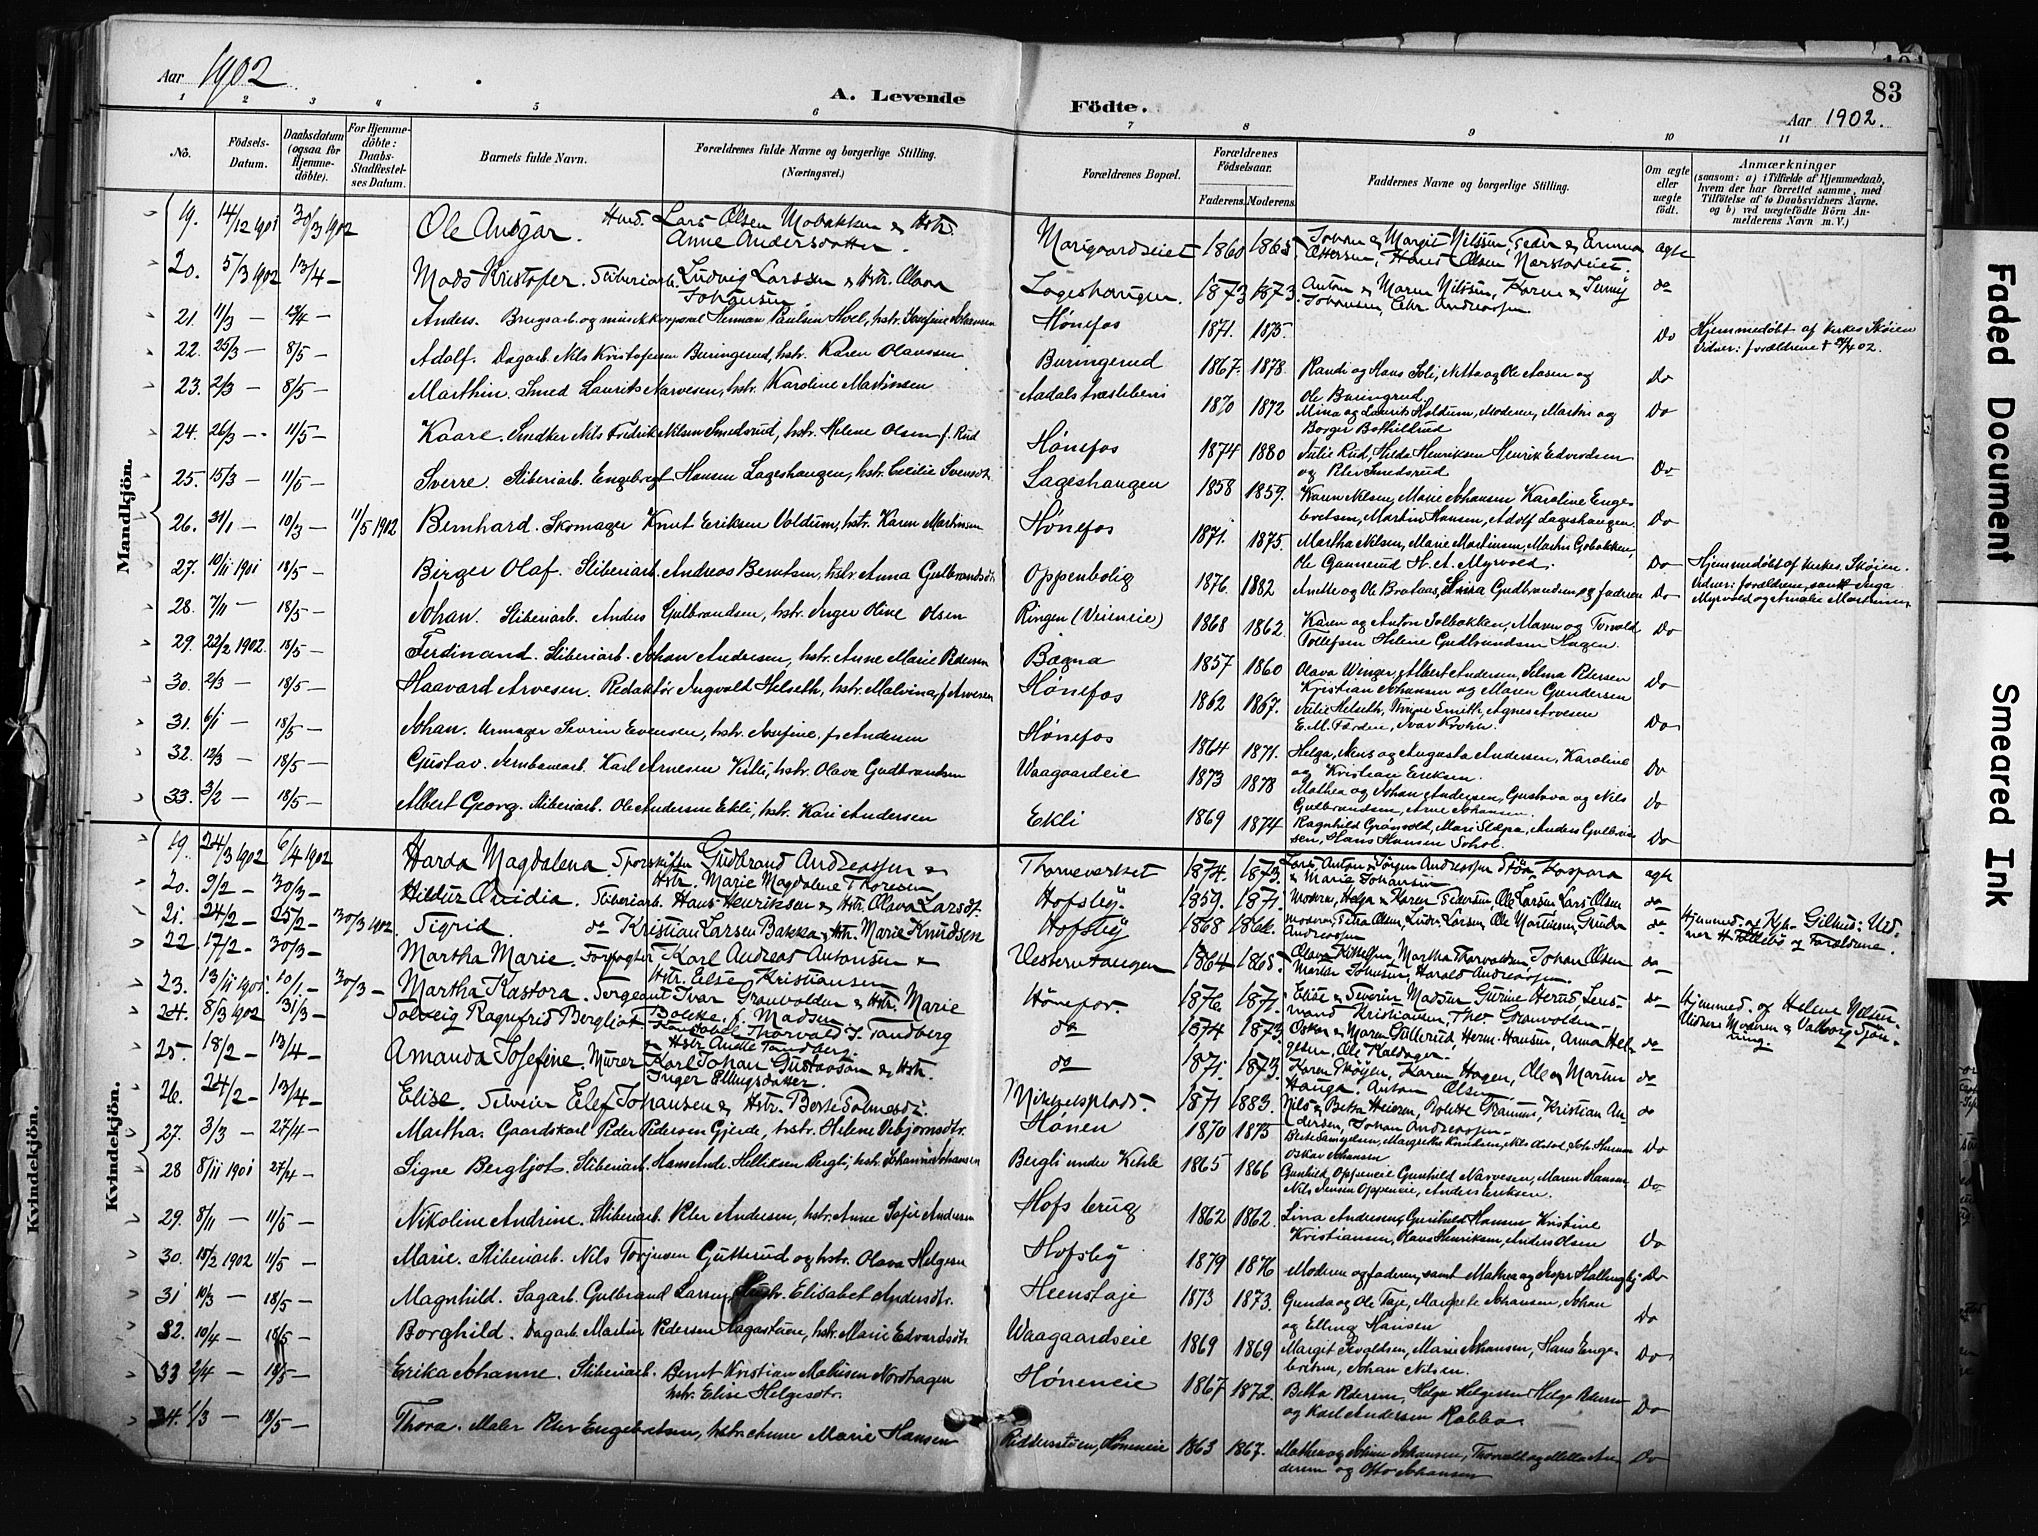 Aar 1902.
A. Levende Födte.
83
Aar 1902.
1 2 3 4 5 6 7 8 9 10 11
No.
Födsels-Datum.
Daabsdatum (ogsaa for Hjemme-döbte).
For Hjemme-döbte: Daabs-Stadfæstel-ses Datum.
Barnets fulde Navn.
Forældrenes fulde Navne og borgerlige Stilling. (Næringsvei.)
Forældrenes Bopæl.
Forældrenes Födselsaar.
Faderens. Moderens.
Faddernes Navne og borgerlig Stilling.
Om ægte eller uægte födt.
Anmærkninger
(saasom: a) i Tilfælde af Hjemmedaab,
hvem der har forrettet samme, med
Tilföielse af to Daabsvidners Navne.
og b) ved uægtefödte Börn An-
melderens Navn m. V.)
Mandkjön.
19. 14/12 1901 30/3 1902 Ole Ansgar. Lars Olsen Mobakken & Hstr. Anne Andersdatter. 1860 1865 Johan & Margit Nilssen, Peder & Emma Ottersen, Hans Olsen ægte
20. 5/3 1902 13/4 — Mads Kristofer. Stiberiarb. Ludvig Larssen & Hstr. Olava Johansen Lageshaugen. 1873 1873. Anton & Maren Nilssen, Karen & Jenny Johansen, Chr. Andreassen do
21. 11/3 — 13/4 — Anders. Brugsarb. og musikkorporal Herman Paulsen Hvel, hstr. Josefine Johansen Hönefos 1871. 1875. Do Hjemmedöbt af kirkes. Sköien Vidner: forældrene † 24/4 02.
22. 25/3 — 8/5 — Adolf. Dagarb. Nils Kristofersen Buringerud, hstr. Karen Olavssen Buringerud 1867. 1878. Randi og Hans Soli, Netta og Ole Aasen og Ole Buringrud. Do
23. 2/3 — 8/5 — Marthin. Smed Laurits Narvesen, hstr. Karoline Martinsen Aadals træsliberi 1870 1872 Mina og Laurits Holdum, Moderen, Martin og Borger Bottillrud Do
24. 26/3 — 11/5 — Kaare. Snedker Nils Fredrik Nilsen Smedsrud, hstr. Helene Olsen f. Rud Hönefos 1874 1880 Julie Rud, Hilda Henriksen Henrik Edvardsen og Peter Smedsrud Do
25. 15/3 — 11/5 — Sverre. Sliberiarb. Engebregt Hansen Lageshaugen, hstr. Cecilie Svensdt. Lageshaugen 1858 1859. Karen Nilsen, Marie Johansen Karoline Enge-bretsen, Martin Hansen, Adolf Lageshaugen. Do
26. 31/1 — 10/3 — 11/5 1902 Bernhard. Skomager Knut Eriksen Voldum, hstr. Karen Martinsen Hönefos 1871. 1875. Martha Nilsen, Marie Martinsen, Martin Gobakken, Ole Gunnerud H. A. Myrvold. Do Hjemmedöbt af kirkes. Sköien. Vidner: forældrene, samt Inga Myrvold og Amalie Martinsen
27. 10/11 1901 18/5 — Birger Olaf. Sliberiarb. Andreas Berntsen, hstr. Anna Gulbrandsdt. Oppenbolig 1876. 1882 Anette og Ole Brataas, Lina Gudbrandsen og faderen Do
28. 7/11 — 18/5 — Johan. Sliberiarb. Anders Gulbrandsen, hstr. Inger Oline Olsen Ringen (Veimeie) 1868 1862. Karen og Anton Solbakken, Maren og Torvald Tollefsen Helene Gudbrandsen Hagen. Do
29. 22/2 1902. 18/5 — Ferdinand. Sliberiarb. Johan Andresen, hstr. Anne Marie Pedersen Bægna 1857 1860 Olava Winger, Albert Andersen, Selma Petersen Kristian Johansen og Maren Gundersen Do
30. 2/3 — 18/5 — Haavard Arvesen. Redaktör Ingvald Helseth, hstr. Malvina f. Arvesen Hönefos 1862 1867. Julie Helseth, Smith, Agnes Arvesen E. M. Færden, Ivar Krohn. Do
31. 6/1 — 18/5 — Johan. Urmager Severin Evensen, hstr. Josefine, f. Andersen Hönefos 1864 1871. Helga, Jens og Augusta Andersen, Karoline og Kristian Eriksen. Do
32. 12/3 — 18/5 — Gustav. Jernbanearb. Karl Arnesen Vestli, hstr. Olava Gudbrandsen Waagaardeie 1873 1878 Mathea og Johan Andersen, Gustava og Nils Gulbrandsen, Arne Johansen. Do
33. 3/2 — 18/5 — Albert Georg. Sliberiarb. Ole Andersen Ekli, hstr. Kari Andersen Ekli 1869 1874 Ragnhild Grönvold, Mari Slæpa, Anders Gulbran-sen, Hans Hansen Sohol. Do
Kvindekjön.
19. 24/3 1902 6/4 1902 Harda Magdalena. Sporskifter Gudbrand Andreassen & Hstr. Marie Magdalene Thoresen 1874. 1873. Lars Anton & Jörgen Andreassen Stöa, Kaspara & Marie Johansen ægte
20. 9/2 — 30/3 — Hildur Ovidia. Sliberiarb. Hans Henriksen & Hstr. Olava Larsdt. Hofsby. 1859. 1871. Moderen, Helga & Karen Pedersen, Ole Larsen Lars Olsen do
21. 24/2 — 25/2 — 30/3 1902. Sigrid. do Kristian Larsen Bakka, Hstr. Marie Knudsen Hofsby 1868 1866. do Hjemmed. af Kpl. Gilhus: Vid-ner H. Follebö & Forældrene.
22. 17/2 — 30/3 — Martha Marie. Forpagter Karl Andreas Antonsen & Hstr. Else Kristiansen Vesterntangen 1864 1865. Olava Kittelsen, Martha Thorvaldsen, Johan Olsen Marthe Johnsen, Harald Andreassen. do
23. 13/11 1901 10/1 — 30/3 — Martha Kastora. Sergeant Ivar Granvolden & Hstr. Marie Bolette f. Madsen Hönefos. 1876. 1871. Elise & Severin Madsen Gurine Herud, Kristiansen, Ths. Granvolden — do Hjemmed. af Helene Nilsen. Vidner: Moderen & Valborg
24. 8/3 1902 31/3 — Solveig Ragnfrid Bergljot. Thorvald J. Tandberg & Hstr. Anette Tandberg. do 1874 1873. Oskar & Maren Gullerud, Herm. Hansen, Anna Hel-gesen, Ole Kaldager. do
25. 18/2 — 13/4 — Amanda Josefine. Murer Karl Johan Gustavson & Hstr. Inger Ellingsdatter. do 1871. 1873. Karen Sköyen, Karen Hagen, Ole & Martin Hauga. Anton Olsen do
26. 24/2 — 13/4 — Elise. Elef Johansen & Hstr. Berte Salmesdt. Mikkelsplads. 1871 1883. Nils & Betta Heieren, Bolette Grammo, Kristian An-dersen, Johan Andreassen. do
27. 3/3 — 27/4 — Martha. Gaardskarl Peder Pedersen Gjerde, hstr. Helene Vebjörnsdtr. Hönen 1870 1875 Berte Samuelsen, Margrethe Knudsen, Oskar Johansen Do
28 8/11 1901 27/4 — Signe Bergljot. Sliberiarb. Hans Andr. Helliksen Bergli, hstr. Johanne Johansen Bergli under Kihle 1865 1866 Gunhild Oppeneie Gunhild Narvesen, Maren Hansen Nils Jensen Oppeneie, Anders Eriksen. Do
29. 8/11 — 11/5 — Nikoline Andrine. Sliberiarb. Peter Andersen, hstr. Anne Sofie Andersen Hofs brug 1862 1862. Lina Andersen, Gunhild Hansen Kristine Kristiansen, Hans Henriksen, Anders Olsen Do
30. 15/2 1902 11/5 — Marie. Sliberiarb. Nils Torjusen Gutterud og hstr. Olava Helgesen Hofsby 1879 1876 Moderen og faderen, samt Mathea og Hallingby Do
31 10/3 — 18/5 — Magnhild. Sagarb. Gulbrand Larsen, hstr. Elisabet Andersdtr. Heenstaje 1873 1873. Gunda og Ole Taje, Margrete Johansen, Johan og Elling Hansen Do
32. 10/4 — 18/5 — Borghild. Dagarb. Martin Pedersen Hagastuen, hstr. Marie Edvardsdtr. Waagaardseie 1869 1869 Margit Sevaldsen, Marie Johansen, Hans Enge-bretsen, Johan Nilsen. Do
33 2/4 — 18/5 — Erika Johanne. Sliberiarb. Bernt Kristian Mathisen Nordhagen hstr. Elise Helgesdtr. Höneneie 1867 1872. Betha Pedersen, Helga Helgesen Helge Petersen og Karl Andersen Rabba Do
34. 1/3 — 18/5 — Thora. Maler Peter Engebretsen, hstr. Anne Marie Hansen Höneneie 1863 1867. Mathea og Johan Johansen, Thorvald og Mella An-dersen og Otto Johansen Do
Kvindekjön.
Faded Document
Smeared Ink